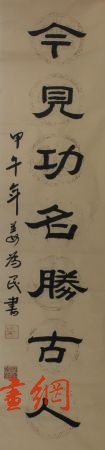 今見功名勝古人
甲午年姜為民書
畫網